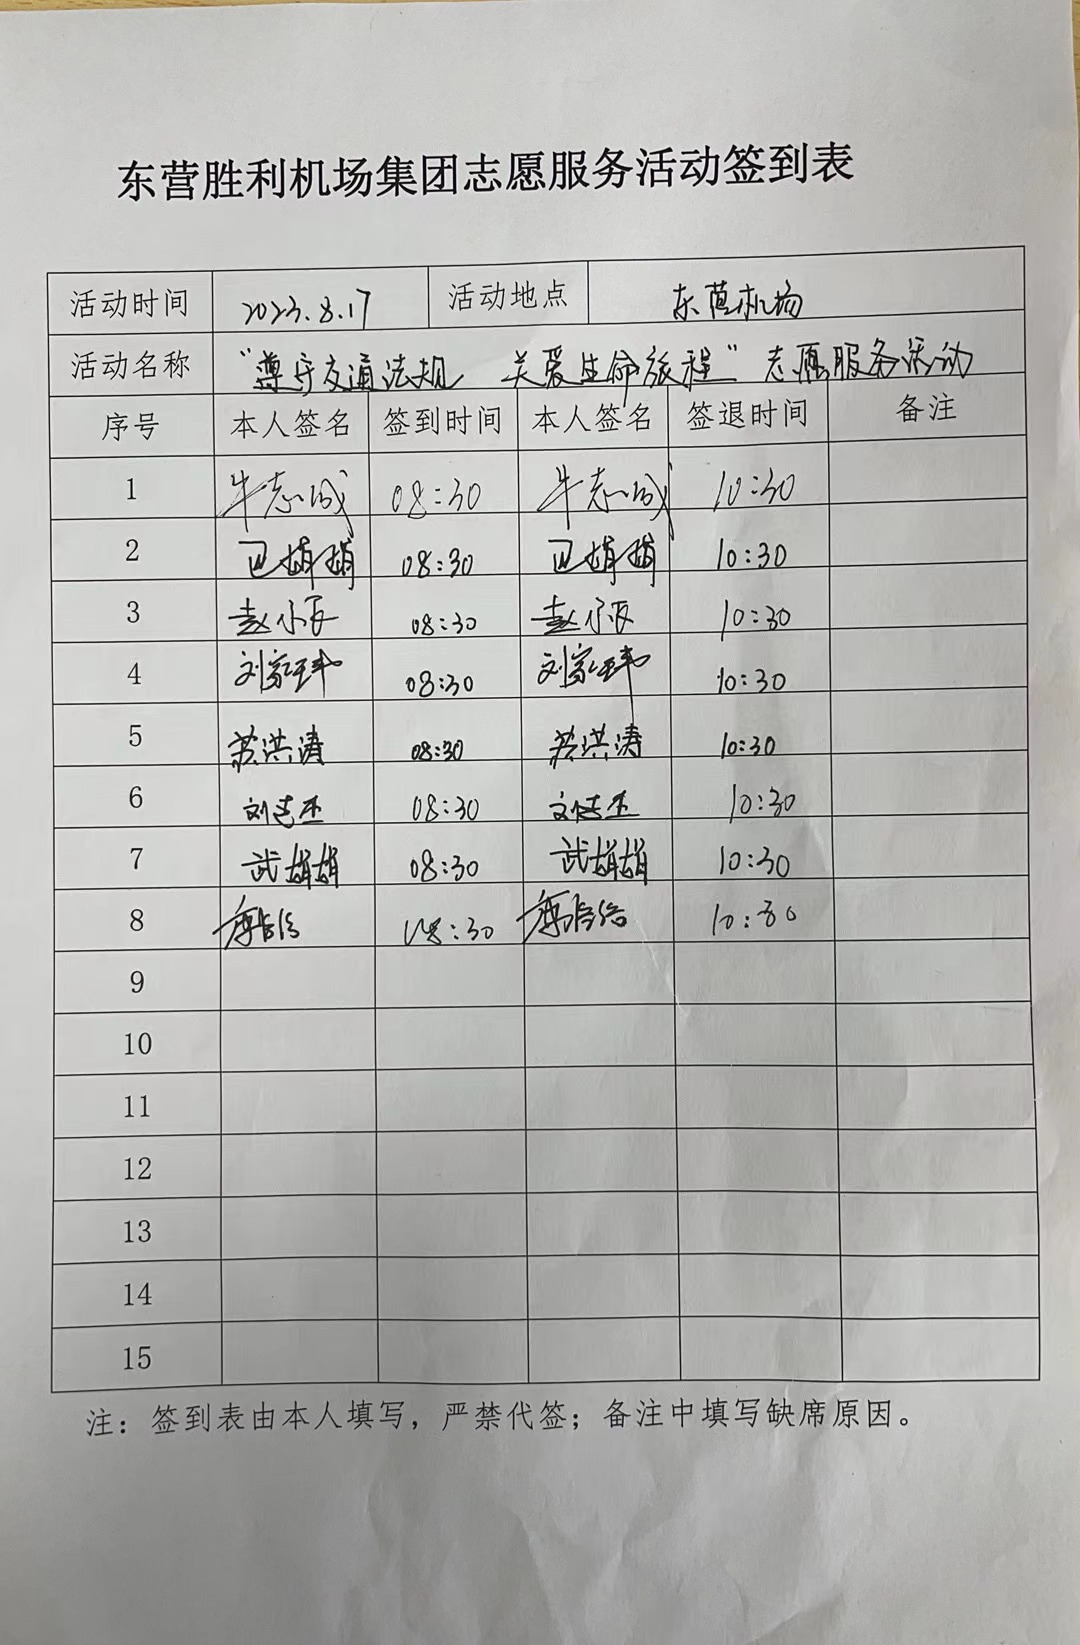 东营胜利机场集团志愿服务活动签到表
活动时间 2023.8.17 活动地点 东营机场
活动名称 “遵守交通法规 关爱生命旅程”志愿服务活动
序号 本人签名 签到时间 本人签名 签退时间 备注
1 牛志成 08:30 牛志成 10:30
2 巴娟娟 08:30 巴娟娟 10:30
3 赵 08:30 赵 10:30
4 刘家玮 08:30 刘家玮 10:30
5 苏洪涛 08:30 苏洪涛 10:30
6 刘志丕 08:30 刘志丕 10:30
7 武娟娟 08:30 武娟娟 10:30
8 08:30 10:30
9
10
11
12
13
14
15
注：签到表由本人填写，严禁代签；备注中填写缺席原因。